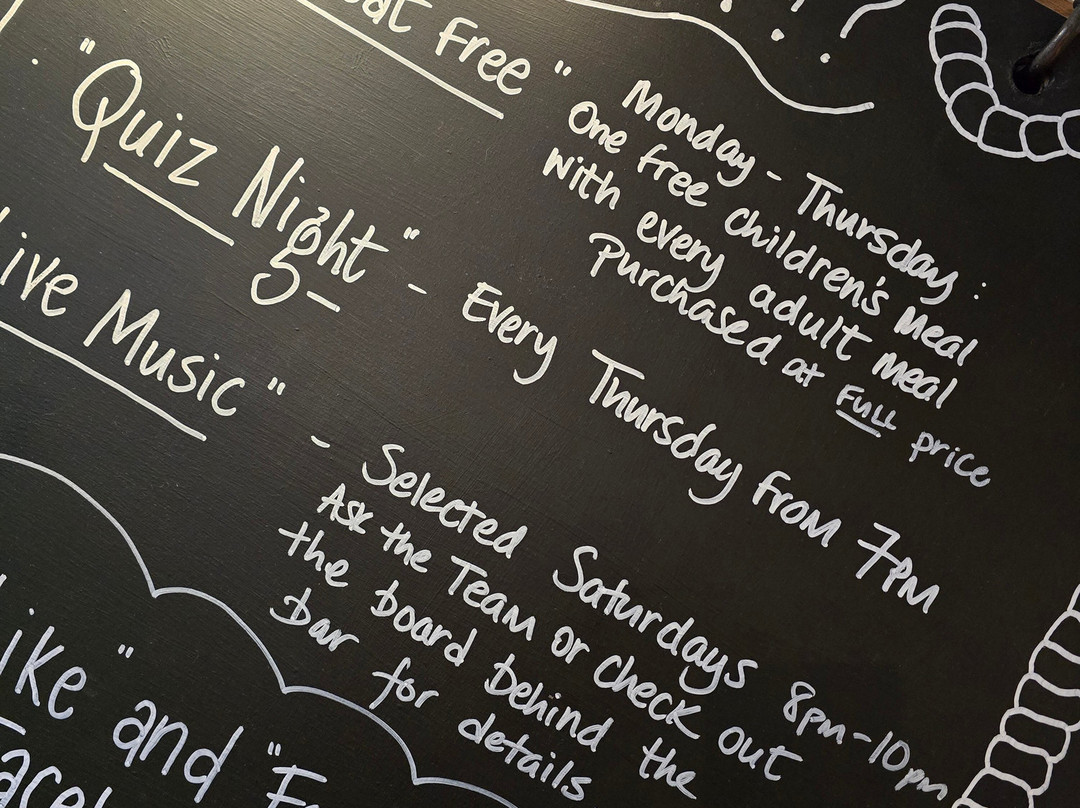 eat Free "
Monday - Thursday :
One free children's meal
with every adult meal
Purchased at FULL price
"Quiz Night" - Every Thursday from 7PM
ive Music" - Selected Saturdays 8pm-10pm
Ask the Team or check out
the board behind the
Bar for details
ike" and "F